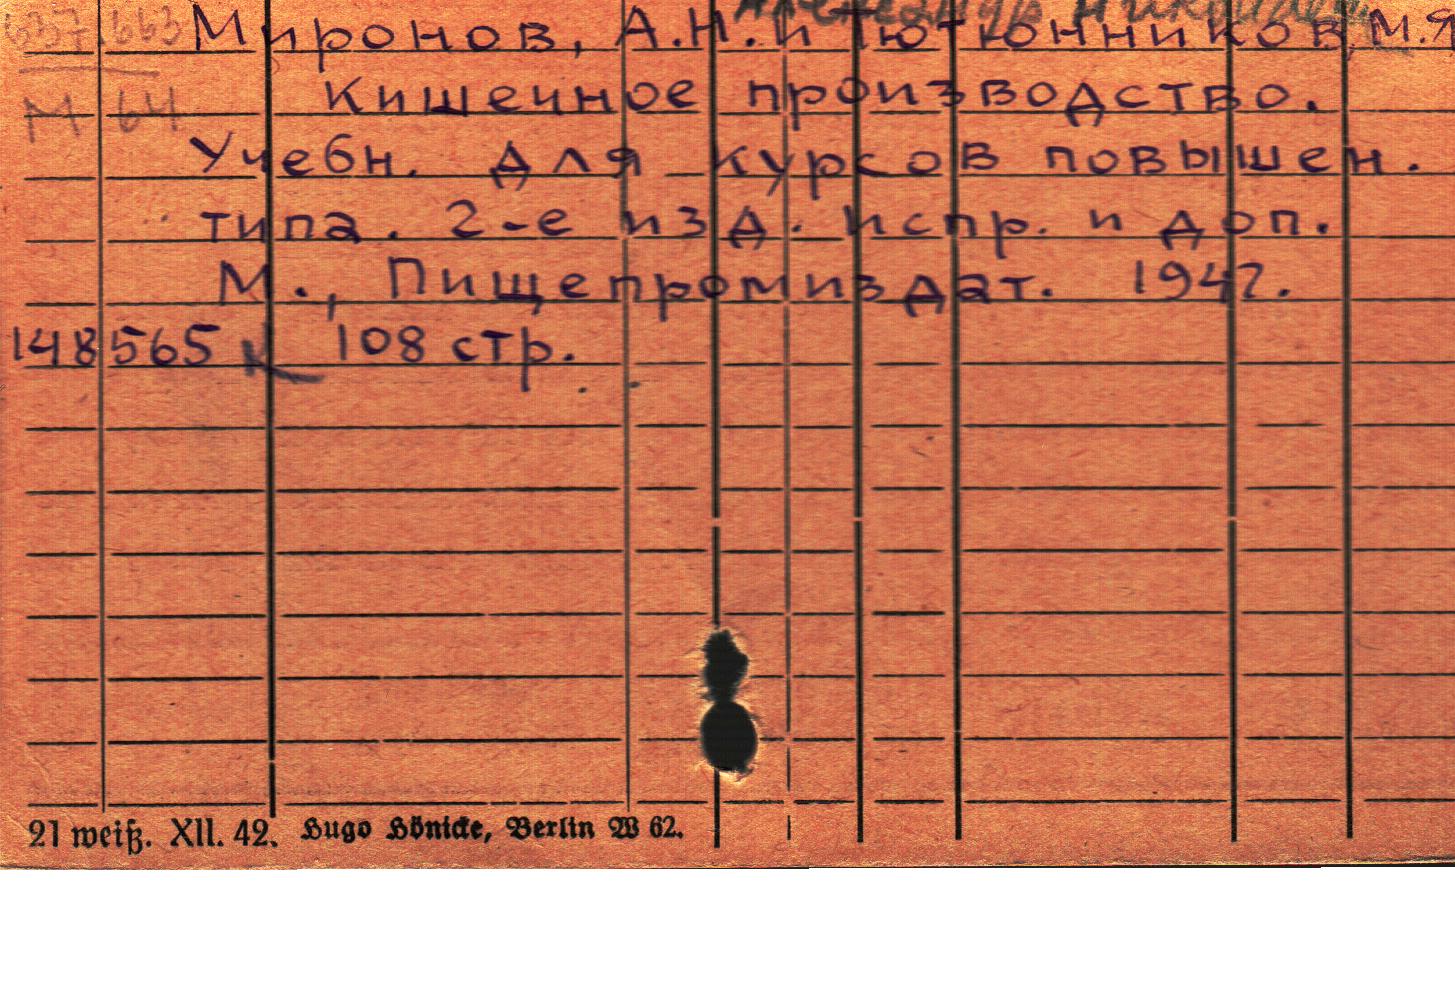 637.663 Миронов, А.Н. и Тютюнников, М.Я
М 64 Кишечное производство.
Учебн. для курсов повышен.
типа. 2-е изд. испр. и доп.
М., Пищепромиздат. 1947.
148565 к 108 стр.
21 weiß. XII. 42. Hugo Hönicke, Berlin W 62.